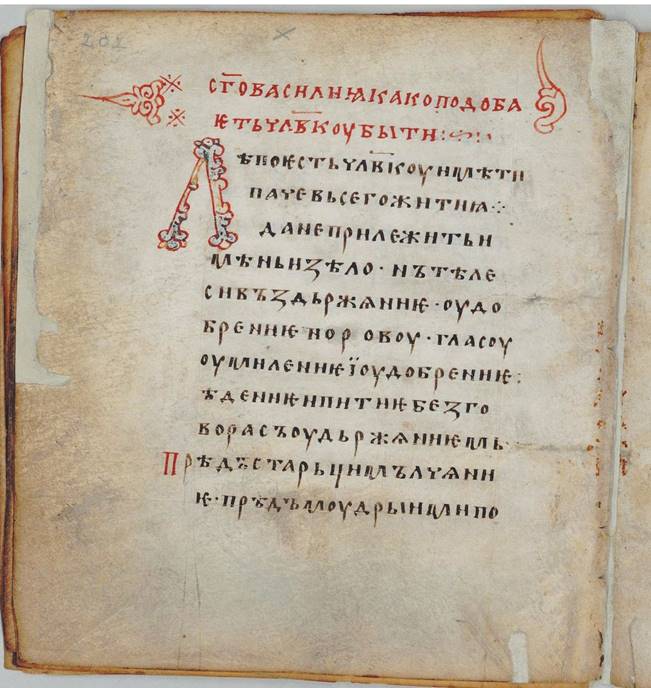 202
ст҃го василиꙗ како подоба
ѥть чл҃вкоу быти
Лѣпо ѥсть чл҃вкоу имѣти
паче вьсего житиꙗ
да не прилежить и
мѣньи зѣло · нъ тѣле
си въздьржяниѥ · оудо
брениѥ норовоу · гласоу
оумилениѥ ї оудобрениѥ :
ѣдениѥ и питиѥ без го
вора съ оудьржяниѥмь ·
Прѣдъ старьци мълчяни
ѥ · прѣдъ моудрыими по